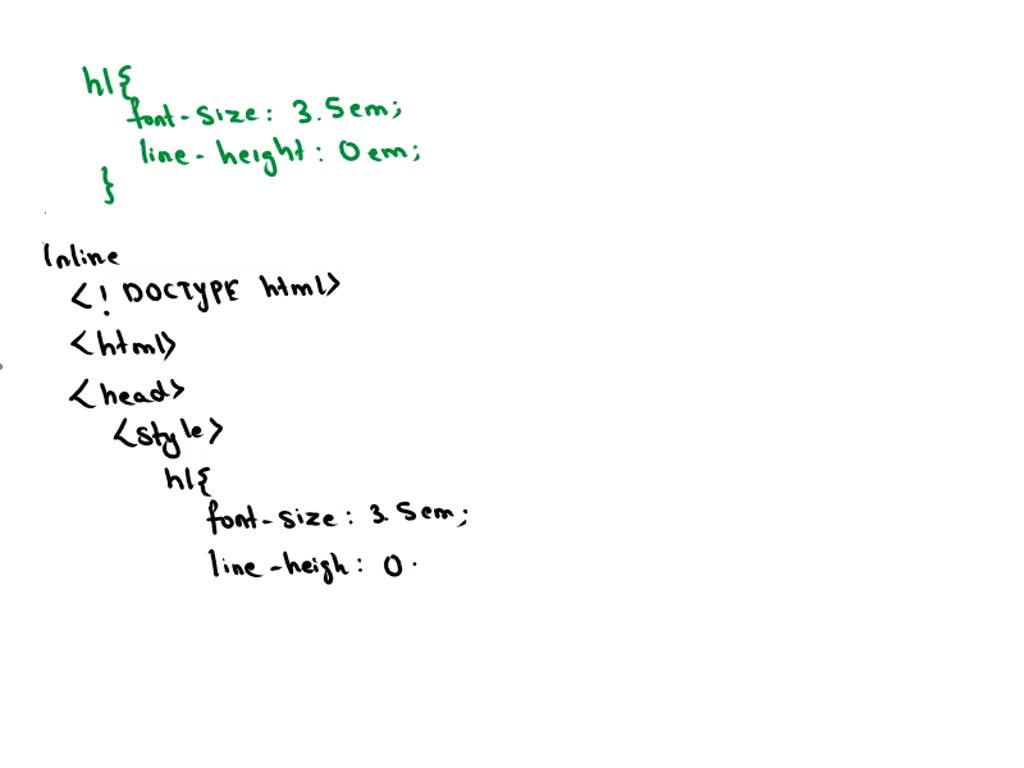 h1{
font-size: 3.5em;
line-height: 0em;
}
Inline
<! DOCTYPE html>
<html>
<head>
<style>
h1{
font-size: 3.5em;
line-heigh: 0.